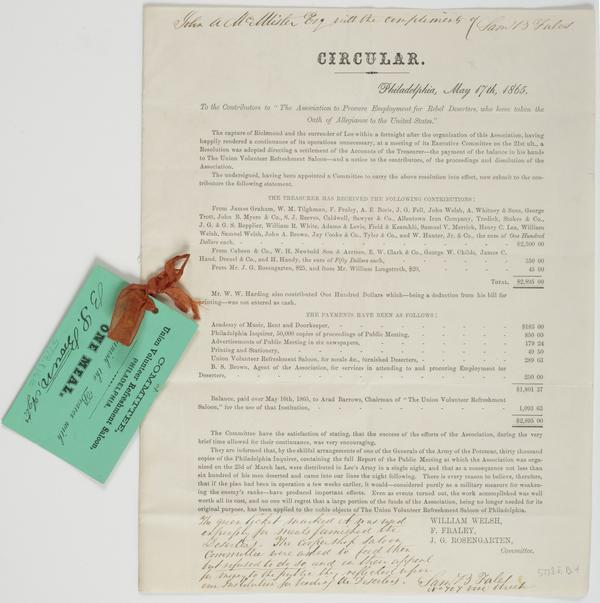 John A McAllister Esq with the compliments of Saml B Fales
CIRCULAR.
Philadelphia, May 17th, 1865.
To the Contributors to "The Association to Procure Employment for Rebel Deserters, who have taken the
Oath of Allegiance to the United States."
The capture of Richmond and the surrender of Lee within a fortnight after the organization of this Association, having
happily rendered a continuance of its operations unnecessary, at a meeting of its Executive Committee on the 21st ult., a
Resolution was adopted directing a settlement of the Accounts of the Treasurer—the payment of the balance in his hands
to The Union Volunteer Refreshment Saloon—and a notice to the contributors, of the proceedings and dissolution of the
Association.
The undersigned, having been appointed a Committee to carry the above resolution into effect, now submit to the con-
tributors the following statement.
THE TREASURER HAS RECEIVED THE FOLLOWING CONTRIBUTIONS:
From James Graham, W. M. Tilghman, F. Fraley, A. E. Borie, J. G. Fell, John Welsh, A. Whitney & Sons, George
Trott, John B. Myers & Co., S. J. Reeves, Caldwell, Sawyer & Co., Allentown Iron Company, Tredick, Stokes & Co.,
J. G. & G. S. Repplier, William H. White, Adams & Levis, Field & Keemhlé, Samuel V. Merrick, Henry C. Lea, William
Welsh, Samuel Welsh, John A. Brown, Jay Cooke & Co., Tyler & Co., and W. Hunter, Jr. & Co., the sum of One Hundred
Dollars each. $2,500 00
From Cabeen & Co., W. H. Newbold Son & Aertsen, E. W. Clark & Co., George W. Childs, James C.
Hand, Drexel & Co., and H. Handy, the sum of Fifty Dollars each, 350 00
From Mr. J. G. Rosengarten, $25, and from Mr. William Longstreth, $20, 45 00
TOTAL, $2,895 00
Mr. W. W. Harding also contributed One Hundred Dollars which—being a deduction from his bill for
printing—was not entered as cash.
THE PAYMENTS HAVE BEEN AS FOLLOWS:
Academy of Music, Rent and Doorkeeper, $183 00
Philadelphia Inquirer, 50,000 copies of proceedings of Public Meeting, 850 00
Advertisements of Public Meeting in six newspapers, 179 24
Printing and Stationery, 49 50
Union Volunteer Refreshment Saloon, for meals &c., furnished Deserters, 289 63
B. S. Brown, Agent of the Association, for services in attending to and procuring Employment for
Deserters, 250 00
$1,801 37
Balance, paid over May 16th, 1865, to Arad Barrows, Chairman of "The Union Volunteer Refreshment
Saloon," for the use of that Institution, 1,093 63
$2,895 00
The Committee have the satisfaction of stating, that the success of the efforts of the Association, during the very
brief time allowed for their continuance, was very encouraging.
They are informed that, by the skilful arrangements of one of the Generals of the Army of the Potomac, thirty thousand
copies of the Philadelphia Inquirer, containing the full Report of the Public Meeting at which the Association was orga-
nized on the 23d of March last, were distributed in Lee's Army in a single night, and that as a consequence not less than
six hundred of his men deserted and came into our lines the night following. There is every reason to believe, therefore,
that if the plan had been in operation a few weeks earlier, it would—considered purely as a military measure for weaken-
ing the enemy's ranks—have produced important effects. Even as events turned out, the work accomplished was well
worth all its cost, and no one will regret that a large portion of the funds of the Association, being no longer needed for its
original purpose, has been applied to the noble objects of The Union Volunteer Refreshment Saloon of Philadelphia.
WILLIAM WELSH,
F. FRALEY,
J. G. ROSENGARTEN,
Committee.
The green ticket marked A was used
expressly for meals furnished the
Deserters. The Cooper Shop Saloon
Committee were asked to feed them
but refused to do so and in their appeal
for money to the public they reflected upon
our Institution for feeding the Deserters.
Saml B Fales
COMMITTEE,
of
Union Volunteer Refreshment Saloon,
PHILADELPHIA.
the Bearer with
ONE MEAL.
B S Brown Agt